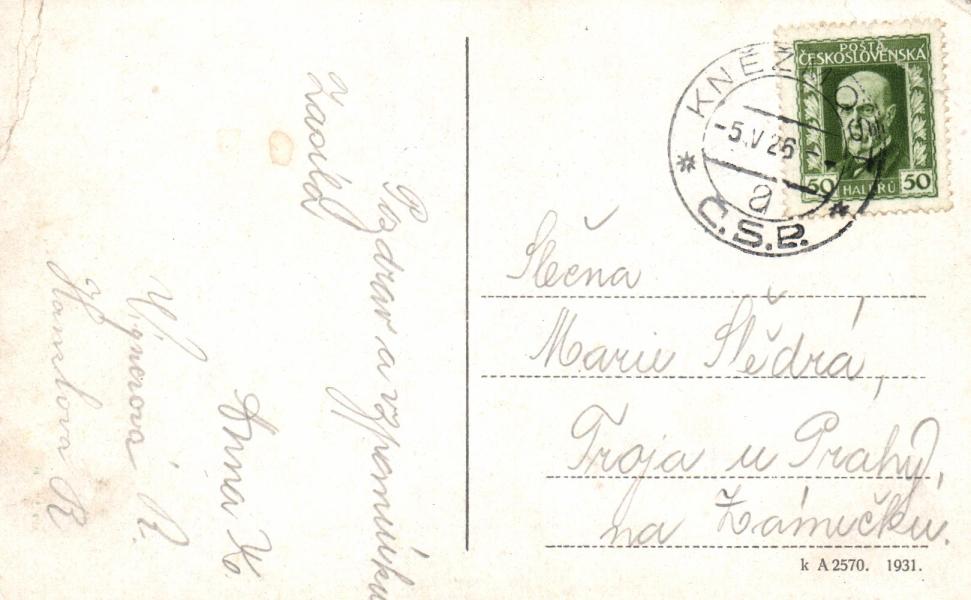 Pozdrav a vzpomínku
zasílá
Anna K.
R.
R
POŠTA
ČESKOSLOVENSKÁ
50 HALÉŘŮ 50
KNĚŽ
-5.V 26
a
Č.S.P.
Slečna
Marie Štědrá,
Troja u Prahy,
na Zámečku.
k A 2570. 1931.